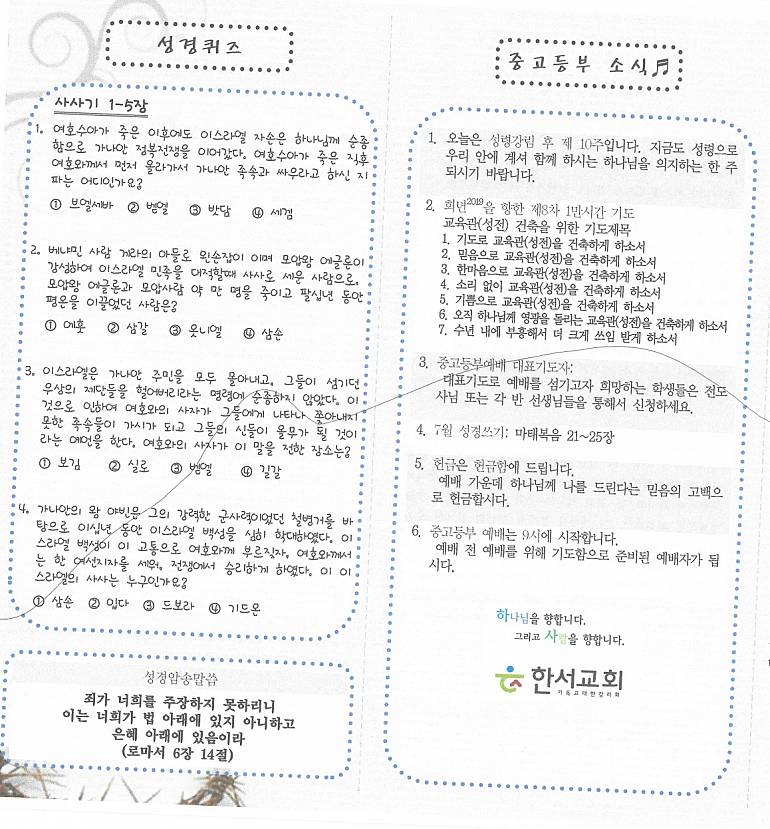 성경퀴즈
사사기 1-5장
1. 여호수아가 죽은 이후에도 이스라엘 자손은 하나님께 순종
함으로 가나안 정복전쟁을 이어갔다. 여호수아가 죽은 직후
여호와께서 먼저 올라가서 가나안 족속과 싸우라고 하신 지
파는 어디인가요?
① 브엘세바 ② 벧엘 ③ 밧담 ④ 세겜
2. 베냐민 사람 게라의 아들로 왼손잡이 이며 모압왕 에글론이
강성하여 이스라엘 민족을 대적할때 사사로 세운 사람으로,
모압왕 에글론과 모압사람 약 만 명을 죽이고 팔십년 동안
평온을 이끌었던 사람은?
① 에훗 ② 삼갈 ③ 옷니엘 ④ 삼손
3. 이스라엘은 가나안 주민을 모두 몰아내고, 그들이 섬기던
우상의 제단들을 헐어버리라는 명령에 순종하지 않았다. 이
것으로 인하여 여호와의 사자가 그들에게 나타나 쫓아내지
못한 족속들이 가시가 되고 그들의 신들이 올무가 될 것이
라는 예언을 한다. 여호와의 사자가 이 말을 전한 장소는?
① 보김 ② 실로 ③ 벧엘 ④ 길갈
4. 가나안의 왕 야빈은 그의 강력한 군사력이었던 철병거를 바
탕으로 이십년 동안 이스라엘 백성을 심히 학대하였다. 이
스라엘 백성이 이 고통으로 여호와께 부르짖자, 여호와께서
는 한 여선지자를 세워, 전쟁에서 승리하게 하였다. 이 이
스라엘의 사사는 누구인가요?
① 삼손 ② 입다 ③ 드보라 ④ 기드온
성경암송말씀
죄가 너희를 주장하지 못하리니
이는 너희가 법 아래에 있지 아니하고
은혜 아래에 있음이라
(로마서 6장 14절)
중고등부 소식♬
1. 오늘은 성령강림 후 제 10주입니다. 지금도 성령으로
우리 안에 계셔 함께 하시는 하나님을 의지하는 한 주
되시기 바랍니다.
2. 희년2019을 향한 제8차 1만시간 기도
교육관(성전) 건축을 위한 기도제목
1. 기도로 교육관(성전)을 건축하게 하소서
2. 믿음으로 교육관(성전)을 건축하게 하소서
3. 한마음으로 교육관(성전)을 건축하게 하소서
4. 소리 없이 교육관(성전)을 건축하게 하소서
5. 기쁨으로 교육관(성전)을 건축하게 하소서
6. 오직 하나님께 영광을 돌리는 교육관(성전)을 건축하게 하소서
7. 수년 내에 부흥해서 더 크게 쓰임 받게 하소서
3. 중고등부예배 대표기도자:
대표기도로 예배를 섬기고자 희망하는 학생들은 전도
사님 또는 각 반 선생님들을 통해서 신청하세요.
4. 7월 성경쓰기: 마태복음 21~25장
5. 헌금은 헌금함에 드립니다.
예배 가운데 하나님께 나를 드린다는 믿음의 고백으
로 헌금합시다.
6. 중고등부 예배는 9시에 시작합니다.
예배 전 예배를 위해 기도함으로 준비된 예배자가 됩
시다.
하나님을 향합니다.
그리고 사람을 향합니다.
한서교회
기독교대한감리회